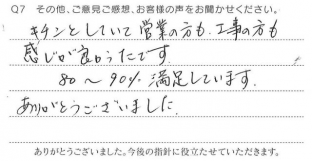 Q7 その他、ご意見ご感想、お客様の声をお聞かせください。
キチンとしていて営業の方も、工事の方も
感じが良かったです。
80〜90%満足しています。
ありがとうございました。
ありがとうございました。今後の指針に役立たせていただきます。